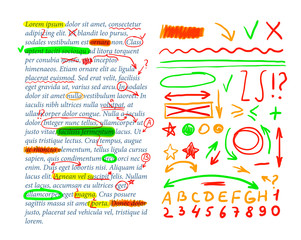 Lorem ipsum dolor sit amet, consectetur
adipiscing elit. Blandit leo purus,
sodales vestibulum est ornare non. Class
aptent taciti sociosqu ad litora torquent
per conubia nostra, per inceptos
himenaeos. Etiam ornare elit ac ligula
placerat euismod. Sed erat velit, facilisis
gravida et, varius sed arcu. In sodales
dolor sit amet nulla vestibulum laoreet. In
iaculis nibh ultrices nulla volutpat, at
ullamcorper dolor congue. Nulla a iaculis
dolor. Integer nunc tellus, ullamcorper at
justo vitae, facilisis fermentum lacus. Ut
quis tristique lectus. Cras tempus, augue
elementum, tellus ligula cursus
sapien, quis condimentum leo orci vel
enim. Duis eget lobortis mi. Aliquam id
lacus elit. Aenean vel suscipit felis. Nullam
est lacus, accumsan eu ultrices eget,
ullamcorper eget magna. Cras posuere
sagittis massa sit amet porta. Donec dolor
justo, placerat sed vehicula vel, tristique id
lorem.
A
B
?
! ?
A B C D E F G H ! ?
1 2 3 4 5 6 7 8 9 0